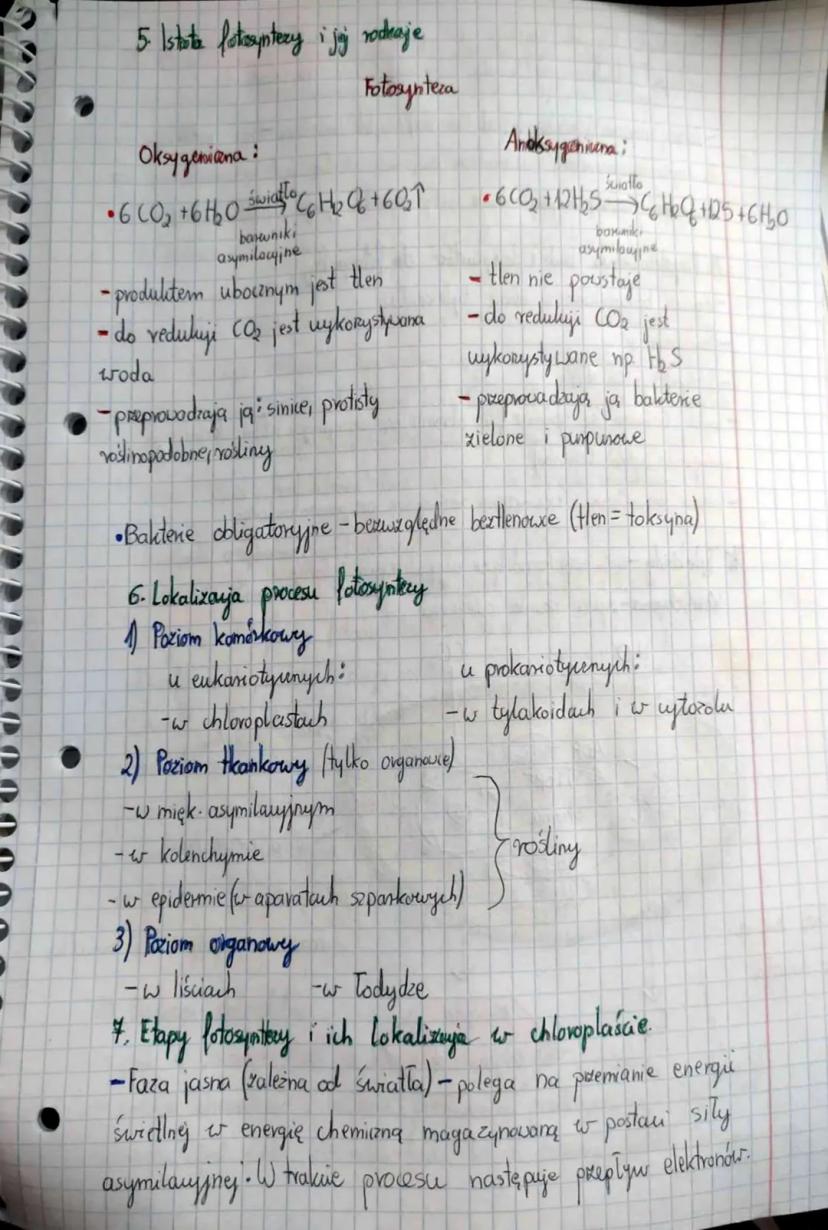 5. Istota fotosyntezy i jej rodzaje
Fotosynteza
Oksygeniczna:
• 6CO₂ + 6H₂O światło → C₆H₁₂O₆ + 6O₂↑
barwniki
asymilacyjne
- produktem ubocznym jest tlen
- do redukcji CO₂ jest wykorzystywana
woda
- przeprowadzają ją: sinice, protisty
roślinopodobne, rośliny
Anoksygeniczna:
• 6CO₂ + 12H₂S światło → C₆H₁₂O₆ + 12S + 6H₂O
barwniki
asymilacyjne
- tlen nie powstaje
- do redukcji CO₂ jest
wykorzystywane np. H₂S
- przeprowadzają ją bakterie
zielone i purpurowe
• Bakterie obligatoryjne - bezwzględne beztlenowce (tlen = toksyna)
6. Lokalizacja procesu fotosyntezy
1) Poziom komórkowy
u eukariotycznych:
- w chloroplastach
u prokariotycznych:
- w tylakoidach i w cytozolu
2) Poziom tkankowy (tylko organowce)
- w mięk. asymilacyjnym
- w kolenchymie
- w epidermie (w aparatach szparkowych)
rośliny
3) Poziom organowy
- w liściach - w łodydze
7. Etapy fotosyntezy i ich lokalizacja w chloroplaście.
- Faza jasna (zależna od światła) - polega na przemianie energii
świetlnej w energię chemiczną magazynowaną w postaci siły
asymilacyjnej. W trakcie procesu następuje przepływ elektronów.